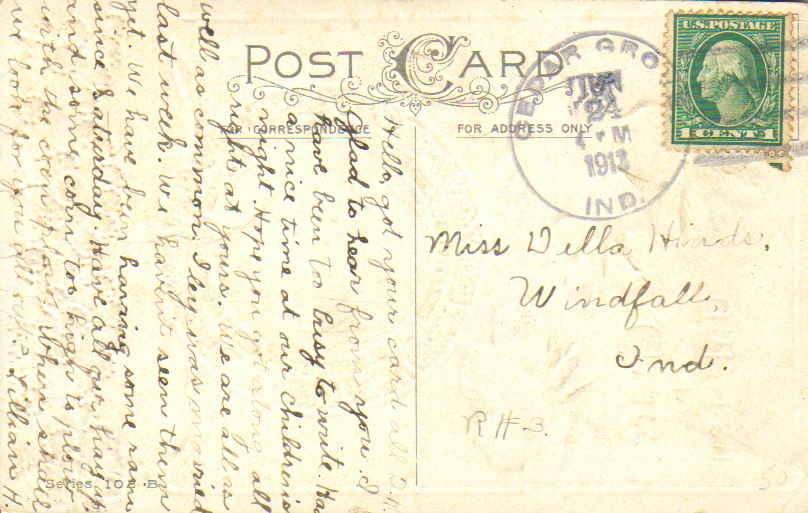 POST CARD
FOR CORRESPONDENCE
FOR ADDRESS ONLY
CEDAR GRO
JUN
24
M
1913
IND.
U.S. POSTAGE
1 CENT 1
Hello, got your card all O.K.
Glad to hear from you. I
have been too busy to write. Had
a nice time at our childrens
night. Hope you got along all
right at yours. We are all as
well as common. was married
last week. We havent seen them
yet. We have been having some rain
since Saturday. Have all our hay up
and some corn too high to plow
with the plow. When shall
we look for you all out? Lillian H.
Miss Della Hinds,
Windfall,
Ind.
R#3.
Series 102 B
50